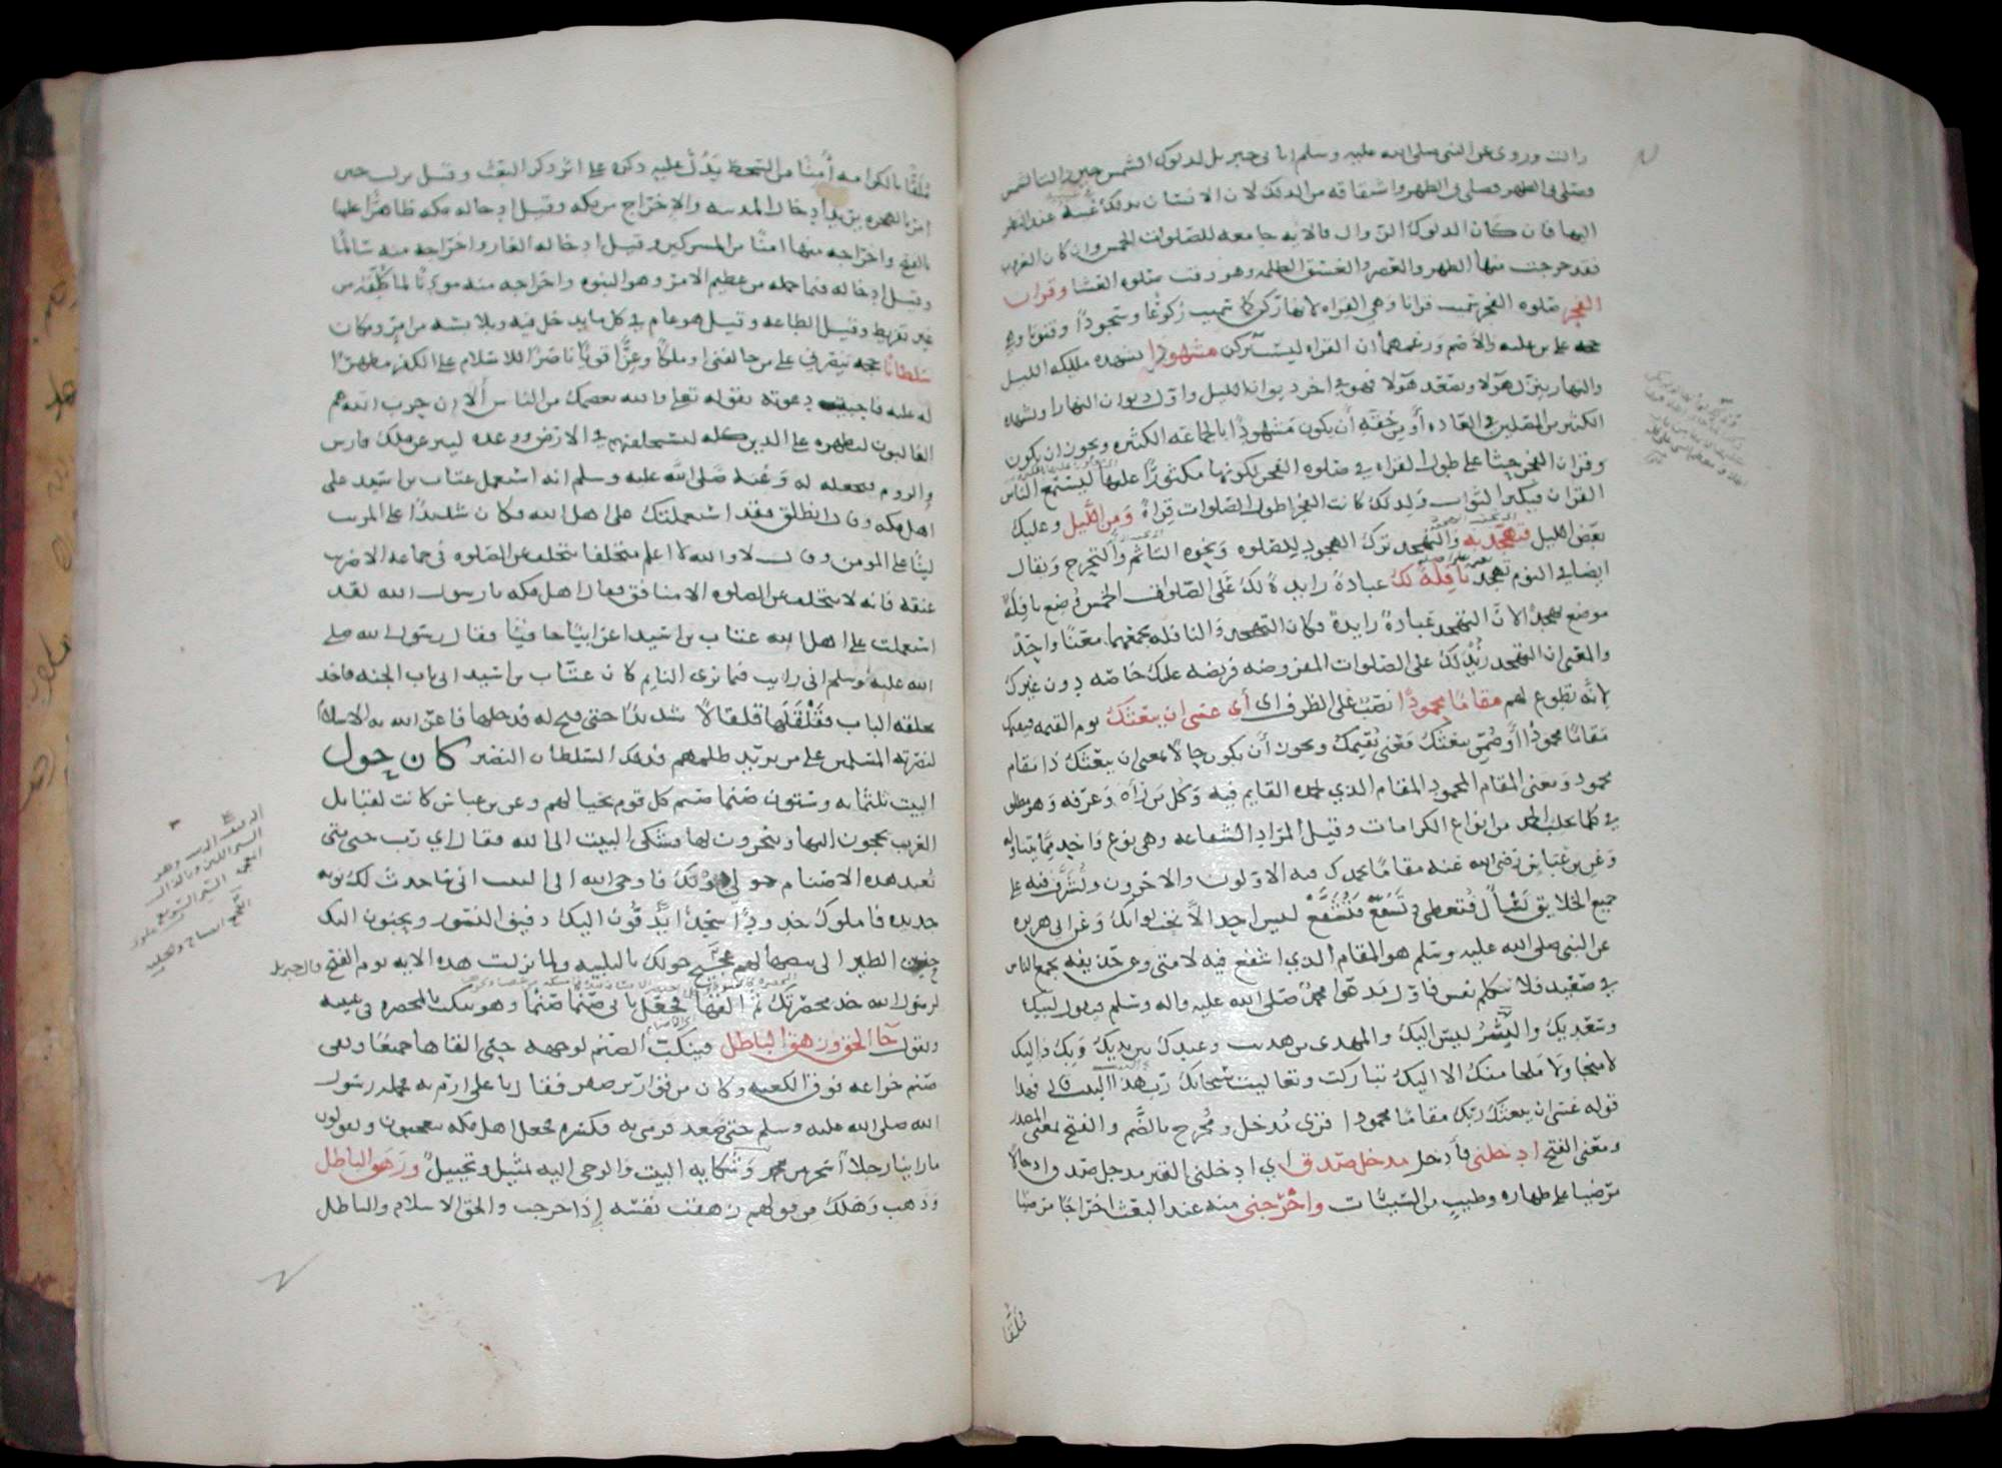 زالت وروى عن النبي صلى الله عليه وسلم اتاني جبريل لدلوك الشمس حين زالت الشمس
وصلى بي الظهر وصلى بي الظهر واشتقاقه من الدلك لان الانسان يدلك عينه عند النظر
اليها فان كان الدلوك الزوال فالايه جامعه للصلوات الخمس وان كان الغروب
فقد خرجت منها الظهر والعصر والغسق الظلمه وهو وقت صلوه العشا وقران
الفجر صلوه الفجر سميت قرانا وهي القراه لانها ركن كما سميت ركوعًا وسجودًا وقنوتا وهي
حجه على بن عليه والاصم وزعمهما ان القراه ليست بركن مشهودا يشهده ملايكه الليل
والنهار ينزل هولا ويصعد هولا فهو في اخر ديوان الليل واول ديوان النهار او يشهده
الكثير من المصلين في العاده أو من حقه أن يكون مشهودًا بالجماعه الكثيره ويجوز ان يكون
وقران الفجر حثا على طول القراه في صلوه الفجر لكونها مكثورًا عليها ليستمع الناس
القران فيكبر الثواب ولذلك كانت الفجر اطول الصلوات قراه ومن الليل وعليك
بعض الليل فتهجد به والتهجد ترك الهجود للصلوه ونحوه التاثم والتحرج ويقال
ايضا في النوم تهجد نافلة لك عبادة زايدة لك على الصلوات الخمس وضع نافلة
موضع تهجدا لان التهجد عبادة زايدة فكان التهجد والنافله يجمعهما معنًا واحدٌ
والمعنى ان التهجد زيد لك على الصلوات المفروضه فريضه عليك خاصه دون غيرك
لانه تطوع لهم مقامًا محمودًا نصب على الظرف اى أي عسى ان يبعثك يوم القيمه فيقيمك
مقامًا محمودًا أو ضمن يبعثك معنى يقيمك ويجوز أن يكون حالا بمعنى ان يبعثك ذا مقام
محمود ومعنى المقام المحمود المقام الذي يحمده القايم فيه وكل من رآه وعرفه وهو مطلق
في كلما يجلب الحمد من انواع الكرامات وقيل المراد الشفاعه وهي نوع واحد مما يتناوله
وعن بن عباس رضي الله عنه مقامًا يحمدك فيه الاولون والاخرون وتشرف فيه على
جميع الخلايق تسأل فتعطى وتشفع فتشفع ليس احد الا تحت لوايك وعن ابي هريره
عن النبي صلى الله عليه وسلم هو المقام الذي اشفع فيه لامتي وعن حذيفه يجمع الناس
في صعيد فلا تتكلم نفس فاول مدعوا محمد صلى الله عليه واله وسلم فيقول لبيك
وسعديك والشر ليس اليك والمهدي من هديت وعبدك بين يديك وبك واليك
لا منجا ولا ملجا منك الا اليك تباركت وتعاليت سبحانك رب هذا البيت قال فهذا
قوله عسى ان يبعثك ربك مقامًا محمودا قرى مُدخل ومُخرج بالضم والفتح بمعنى المصدر
ومعنى الفتح ادخلني فأدخل مدخل صدق اي ادخلني القبر مدخل صدق ادخالا
مرضيا على طهاره وطيب من السيئات واخرجني منه عند البعث اخراجًا مرضيا
ملقًا
ملقًا بالكرامه أمنًا من السخط يدل عليه ذكره على اثر ذكر البعث وقيل نزلت حين
امر بالهجره يريد ادخال المدينه والاخراج من مكه وقيل ادخاله مكه ظاهرًا عليها
بالفتح واخراجه منها امنًا من المشركين وقيل ادخاله الغار واخراجه منه سالمًا
وقيل ادخاله فيما حمله من عظيم الامر وهو النبوه واخراجه منه موديًا لما كلفه من
غير تفريط وقيل الطاعه وقيل هو عام في كل ما يدخل فيه ويلابسه من امر ومكان
سلطانًا حجه تنصرني على من خالفني او ملكًا وعزًّا قويًا ناصرًا للاسلام على الكفر مظهرًا
له عليه فاجيبت دعوته بقوله تعالى والله يعصمك من الناس ألا ان حزب الله هم
الغالبون ليظهره على الدين كله ليستخلفنهم في الارض ووعده لينزعن ملك فارس
والروم فيجعله له وعنه صلى الله عليه وسلم انه استعمل عتاب بن اسيد على
اهل مكه وقال انطلق فقد استعملتك على اهل الله فكان شديدًا على المريب
لينًا على المومن وقال لا والله لا اعلم متخلفا يتخلف عن الصلوه في جماعه الا ضربت
عنقه فانه لا يتخلف عن الصلوه الا منافق فقال اهل مكه يارسول الله لقد
استعملت على اهل الله عتاب بن اسيد اعرابيًا جافيًا فقال رسول الله صلى
الله عليه وسلم اني رايت فيما يرى النايم كان عتاب بن اسيد اتى باب الجنه فاخذ
بحلقه الباب فقلقلها قلقالًا شديدًا حتى فتح له فدخلها فاعز الله به الاسلام
لنصرته المسلمين على من يريد ظلمهم فذلك السلطان النصير كان حول
البيت ثلثمايه وستون صنما صنم كل قوم بحيالهم وعن بن عباس كانت لقبايل
العرب يحجون اليها وينحرون لها فشكى البيت الى الله فقال اي رب حتى متى
تعبد هذه الاصنام حولي دونك فاوحى الله الى البيت اني ساحدث لك نوبه
جديده فاملوك خدودًا سجدًا يدفون اليك دفيف النسور ويحنون اليك
حنين الطير الى بيضها لهم عجيج حولك بالتلبيه ولما نزلت هذه الايه يوم الفتح قال جبريل
لرسول الله خذ مخصرتك ثم القها فجعل ياتي صنما صنمًا وهو ينكت بالمخصره في عينه
ويقول جا الحق وزهق الباطل فينكب الصنم لوجهه حتى القاها جميعًا وبقي
صنم خزاعه فوق الكعبه وكان من قوارير صفر فقال يا علي ارم به فحمله رسول
الله صلى الله عليه وسلم حتى صعد فرمى به فكسره فجعل اهل مكه يتعجبون ويقولون
ما راينا رجلًا اسحر من محمد وشكايه البيت والوحي اليه تمثيل وتخييل وزهق الباطل
وذهب وهلك من قولهم زهقت نفسه إذا خرجت والحق الاسلام والباطل